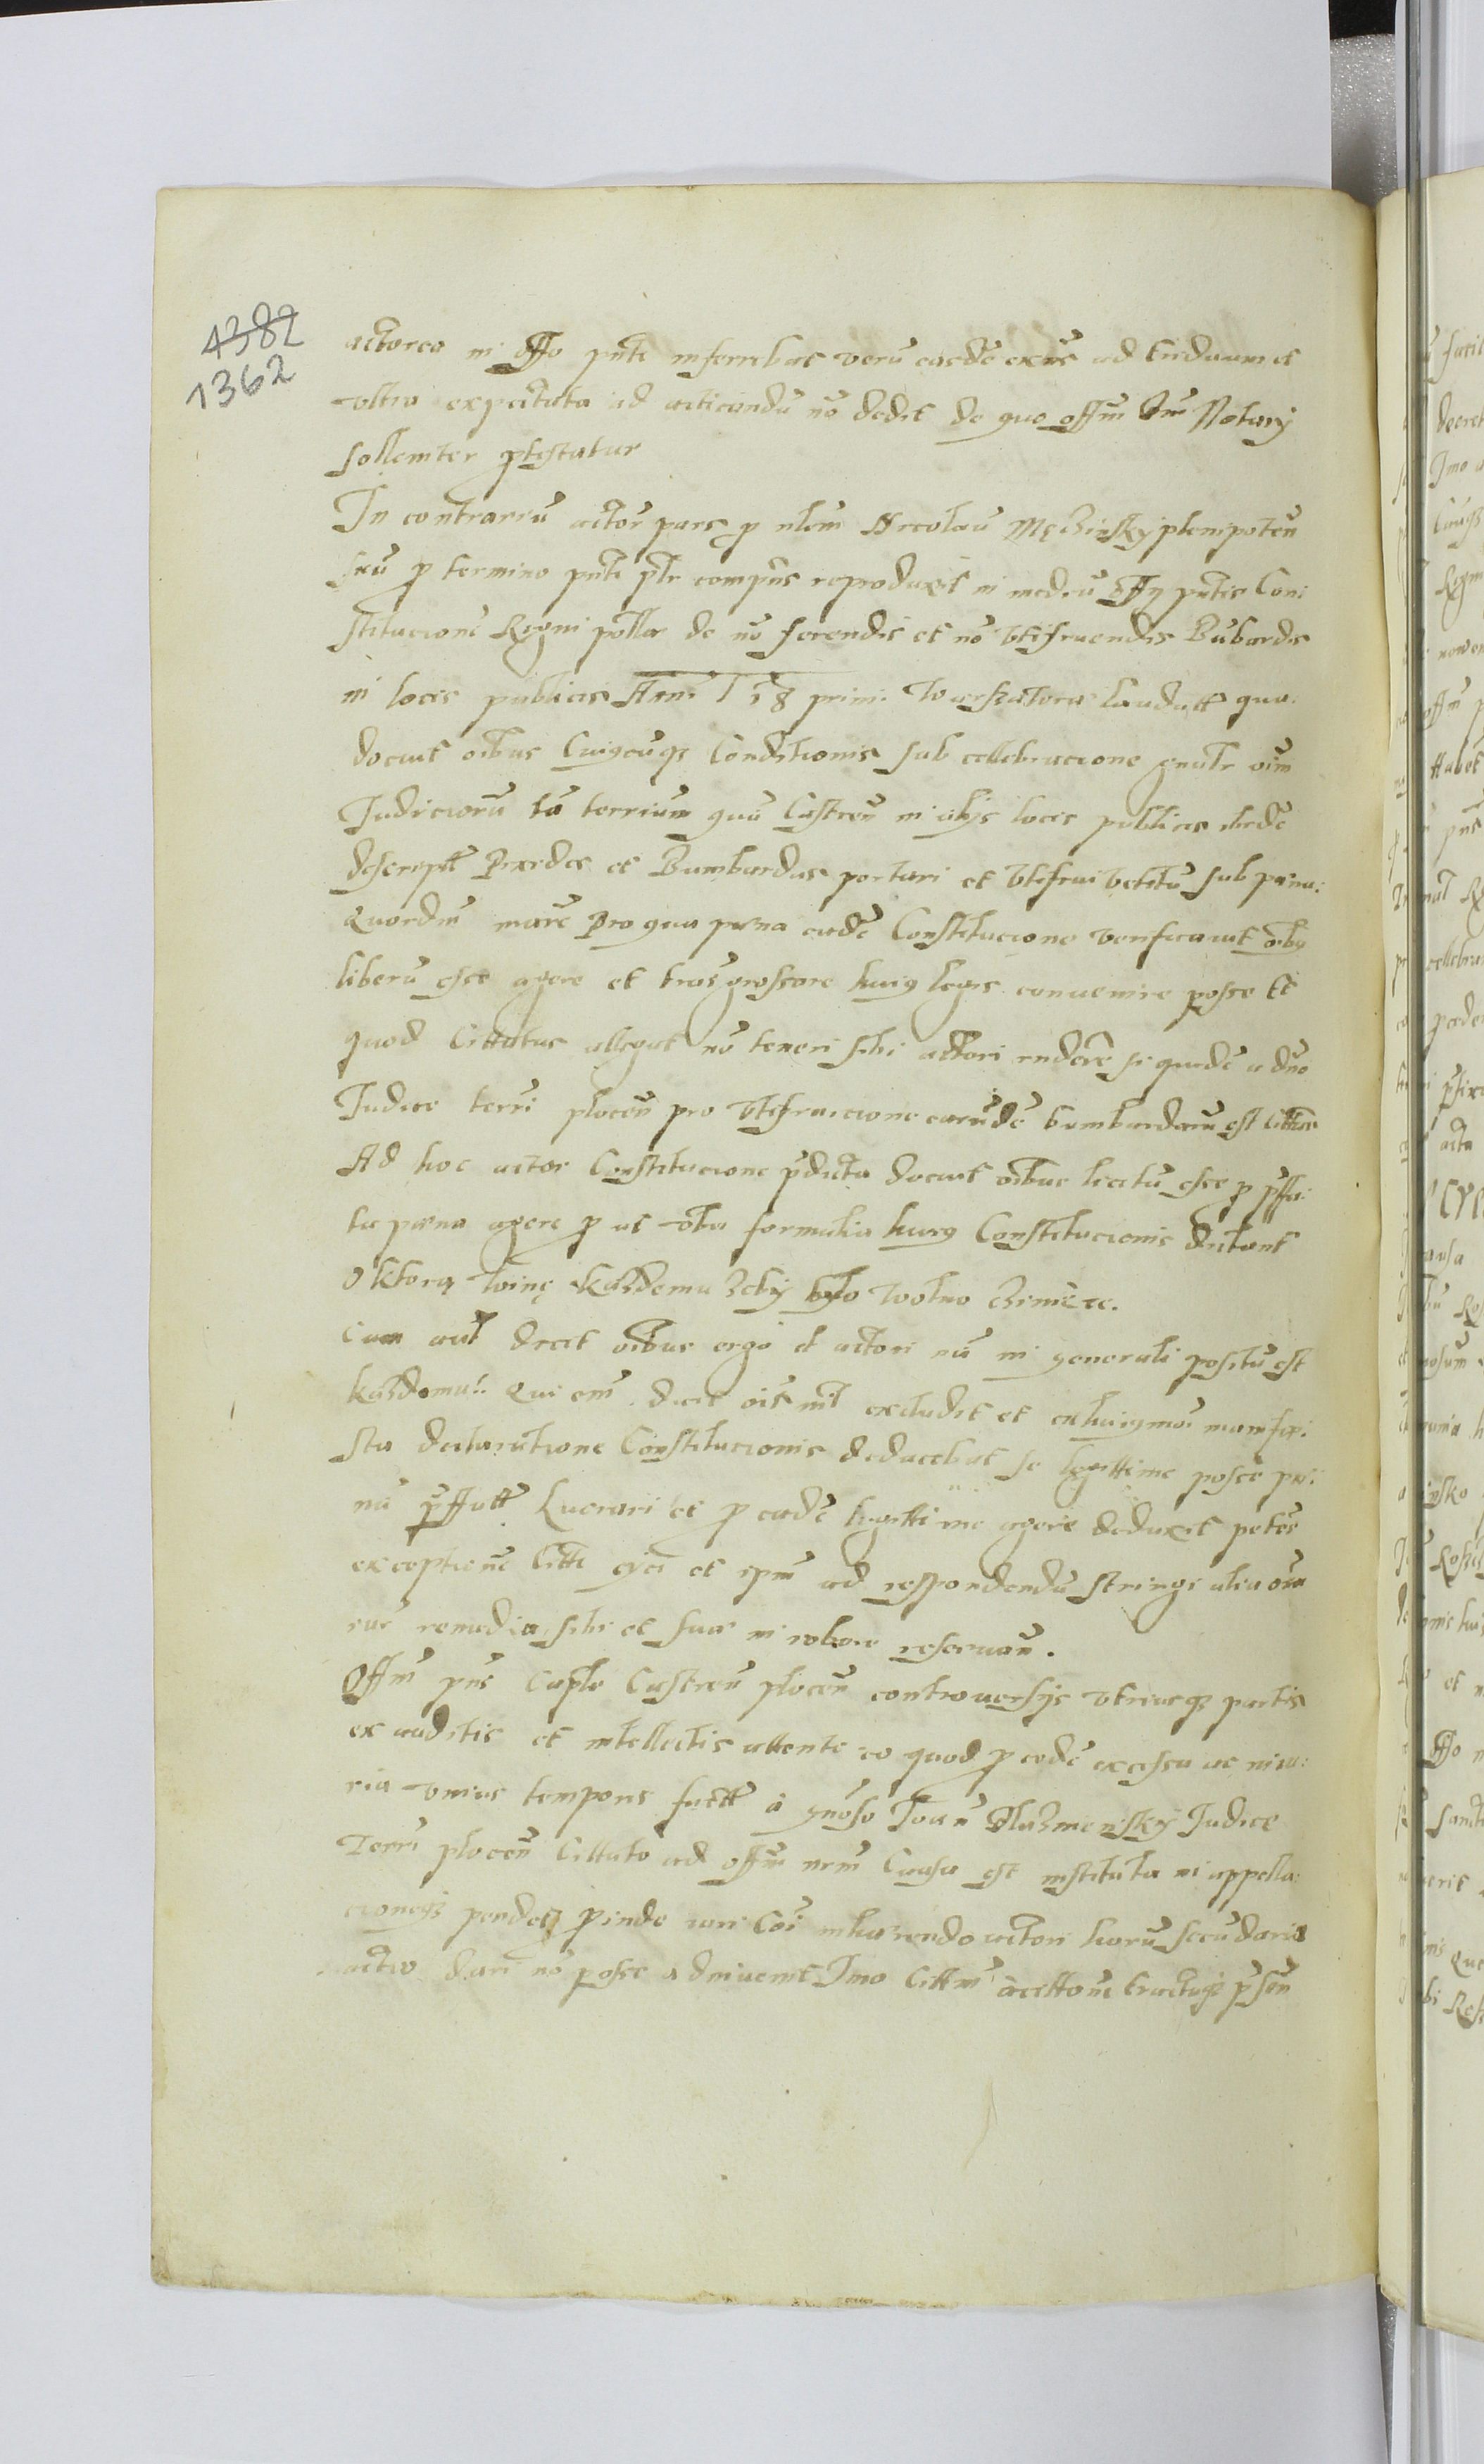 4382
1362
actorea in offo pñti inferrebat verũ easdẽ exñs ad triduum et
vltra expectata ad acticandũ nõ dedit de quo offm Dm̃ Notarÿ
sollemter ptestatur
In contrariũ actor pars p nlem Nicolaũ Męczinsky plenipoteñ
suũ p termino pñti plr compñs reproduxit in mediũ offÿ pñtis Con
stitucionẽ Regni pollae de nõ ferendis et nõ vtifruendis Bũbardis
in locis publicis Anni 1 5 8 primi Warszaviae Laudatt qua
docuit oibus Cuiqcuqz Conditionis sub cellebracione gnałr oim̃
Judiciorũ tã terrium quã Castreñ in alÿs locis publicis ibidẽ
descriptt Pixides et Bumbardas portari et vtifrui vetitũ sub pæna
quordm̃ marc̃ Pro qua pæna eadẽ Constitucione verificauit oibg
liberũ esse agere et trãsgressorẽ huig legis conuenire posse Et
quod Cittatus allegat nõ teneri sibi actori rnderẽ si quidẽ a dño
Judice terrĩ ploceñ pro vtifruicione earũdẽ bumbardarũ est Cittatus
Ad hoc actor Constitucione pdicta docuit oibus licitũ esse p pffa
ta pæna agere p ut vba formalia huig Constitucionis dictant
O ktorą winę każdemu żeby było wolno czinić etc.
Cum aut dicit oibus ergo et actori nã in generali positũ est
każdemu Qui em̃ dicit oẽs nil excludit et ex huigmoi manife
sta declaratione Constitucionis deducebat se legittime posse pæ
nã pffatt Lucrari et p eadẽ legittime agere deduxit petẽs
exceptionẽ Citti eÿci et ipm̃ ad respondendũ stringi alia oia
iur̃ remedia sibi et suæ in robore reseruañ.
Offm̃ pñs Caple Castreñ ploceñ controuersÿs vtriusqz partis
ex auditis et intellectis attente eo quod p eodẽ excessu ac niu
ria vnius temporis factt à gnõso Joañ Głuzinensky Judice
Terrĩ ploceñ Cittato ad offm̃ nrm̃ Causa est instituta in appella
cioneqz pendet Pinde iuri Coĩ inhærendo actori horũ secũdario
actio dari nõ posse adinuenit Imo Cittm̃ acttone tractuqz psen